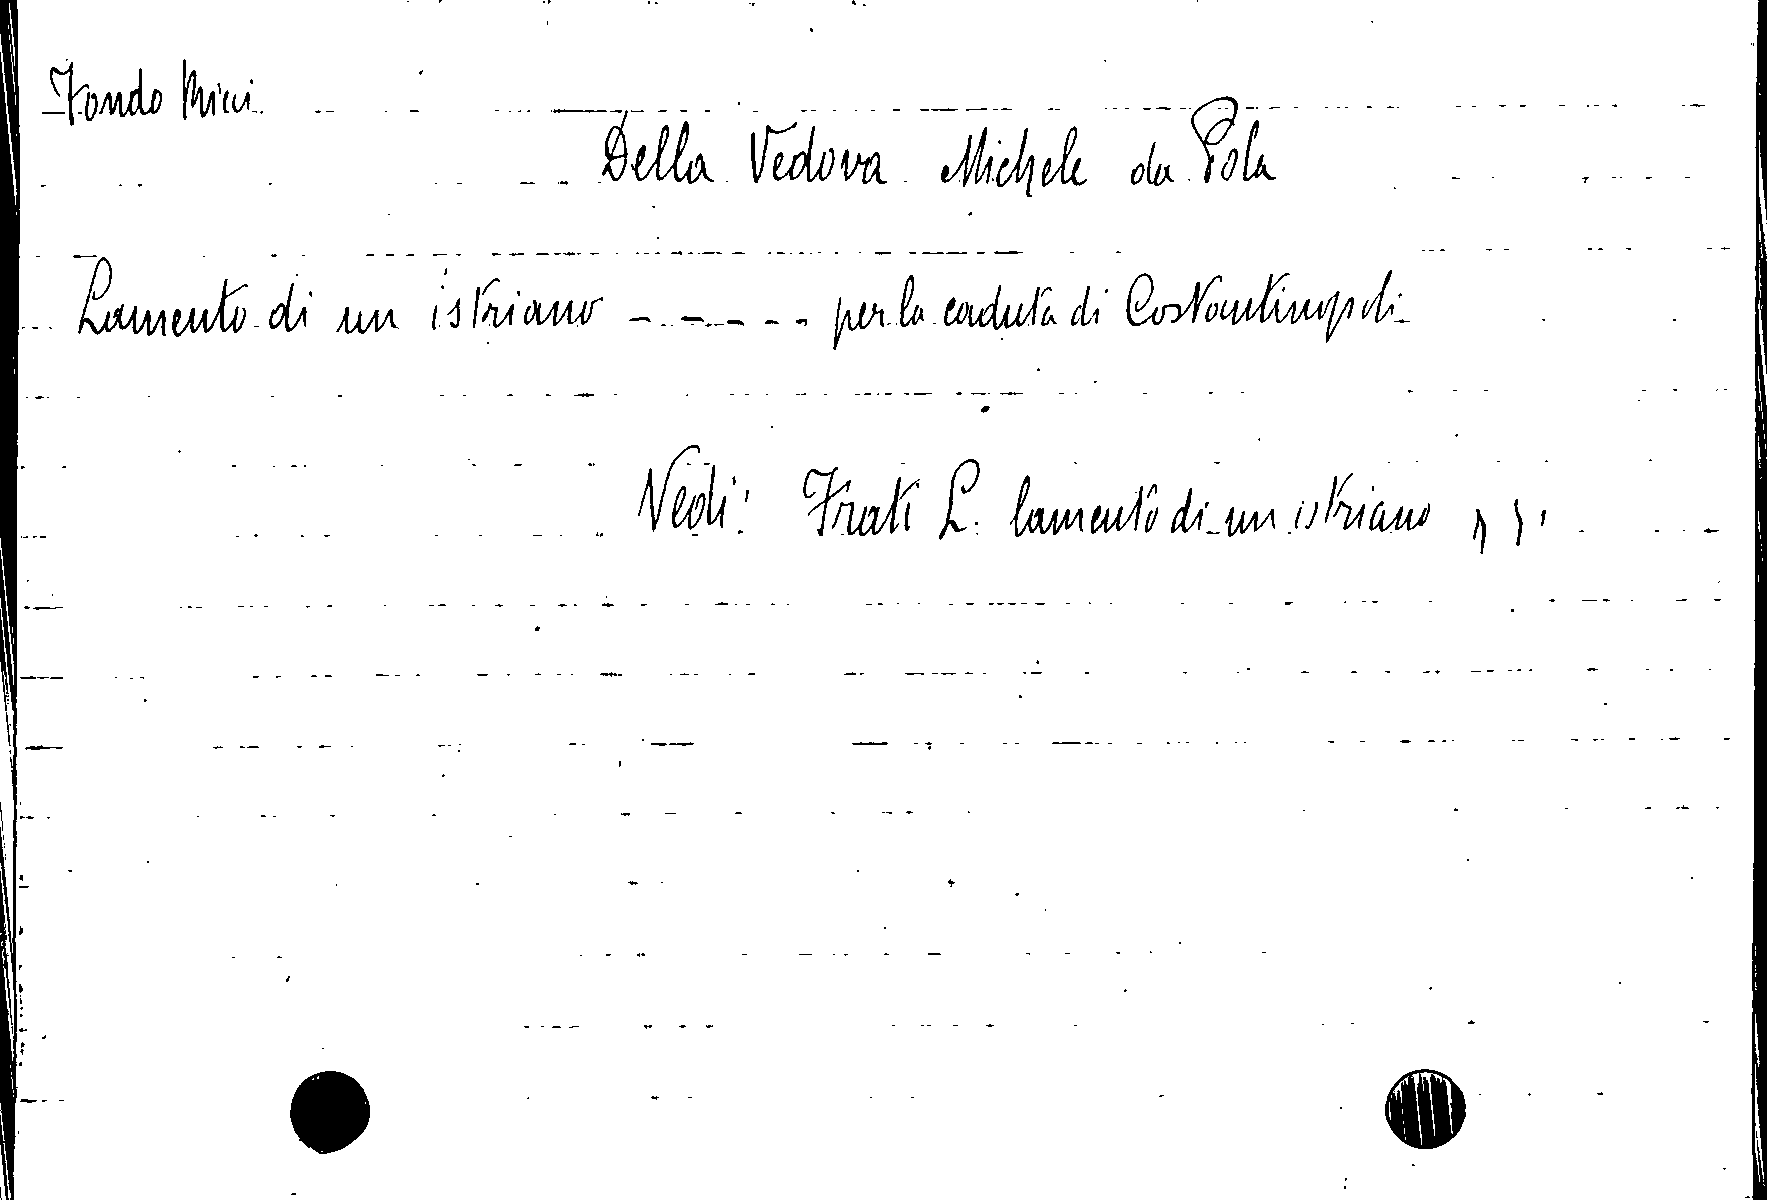 Fondo Ricci
Della Vedova Michele da Pola
Lamento di un istriano ------ per la caduta di Costantinopoli
Vedi: Frati L. lamento di un istriano , , ,